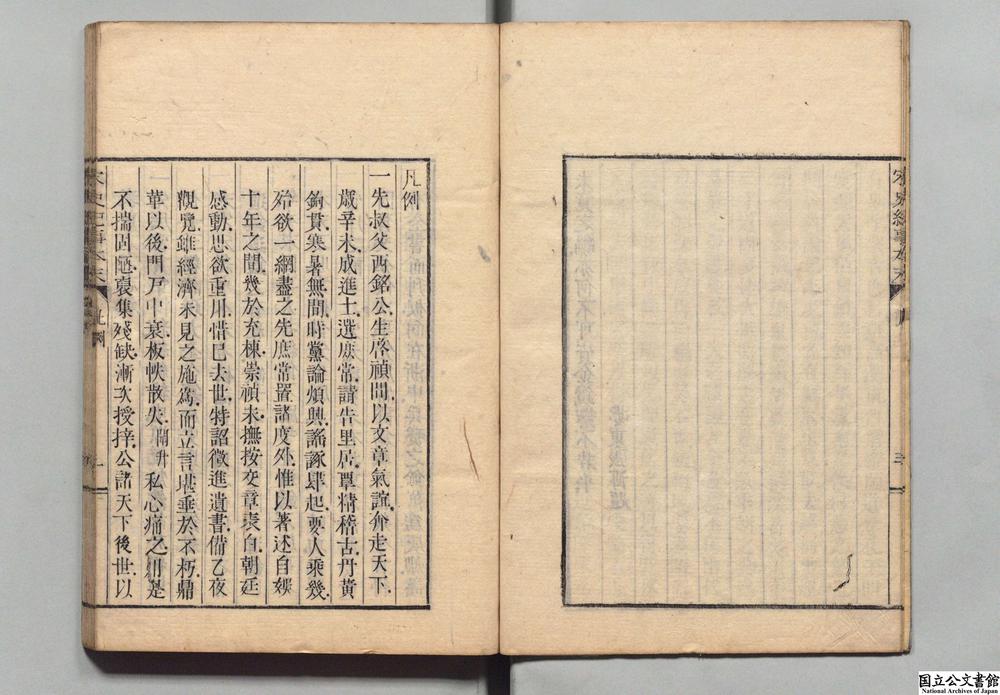 宋史紀事本末
凡例
一先叔父西銘公生啓禎間以文章氣誼奔走天下
歲辛未成進士選庶常請告里居覃精稽古丹黃
鉤貫寒暑無間時黨論煩興謠諑肆起要人乘幾
殆欲一網盡之先庶常置諸度外惟以著述自娛
十年之間幾於充棟崇禎末撫按交章表自朝廷
感動思欲重用惜已去世特詔徵進遺書備乙夜
觀覽雖經濟未見之施爲而立言堪垂於不朽鼎
革以後門戶中衰板帙散失 私心痛之用是
不揣固陋裒集殘缺漸次授梓公諸天下後世以
宋史紀事本末
凡例
一
国立公文書館
National Archives of Japan